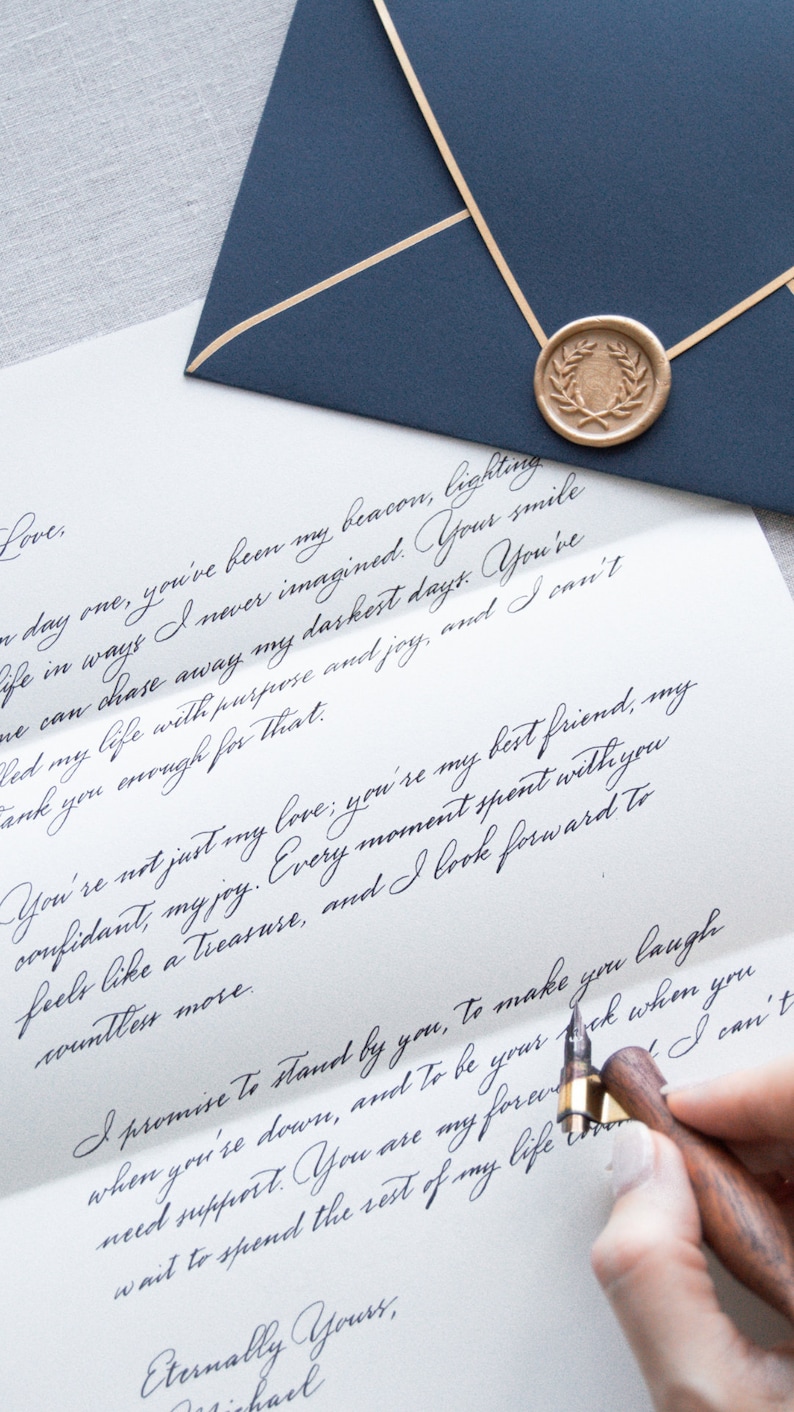 Love,
day one, you've been my beacon, lighting
life in ways I never imagined. Your smile
can chase away my darkest days. You've
my life with purpose and joy, and I can't
you enough for that.
You're not just my love; you're my best friend, my
confidant, my joy. Every moment spent with you
feels like a treasure, and I look forward to
countless more.
I promise to stand by you, to make you laugh
when you're down, and to be your rock when you
need support. You are my I can't
wait to spend the rest of my life
Eternally Yours,
Michael